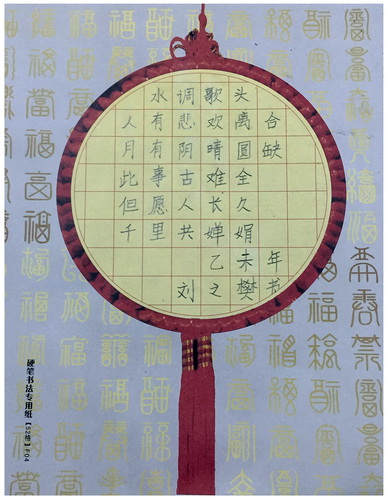 水调歌头
人有悲欢离合
月有阴晴圆缺
此事古难全
但愿人长久
千里共婵娟
乙未年
刘之樊节
硬笔书法专用纸【52格】F04